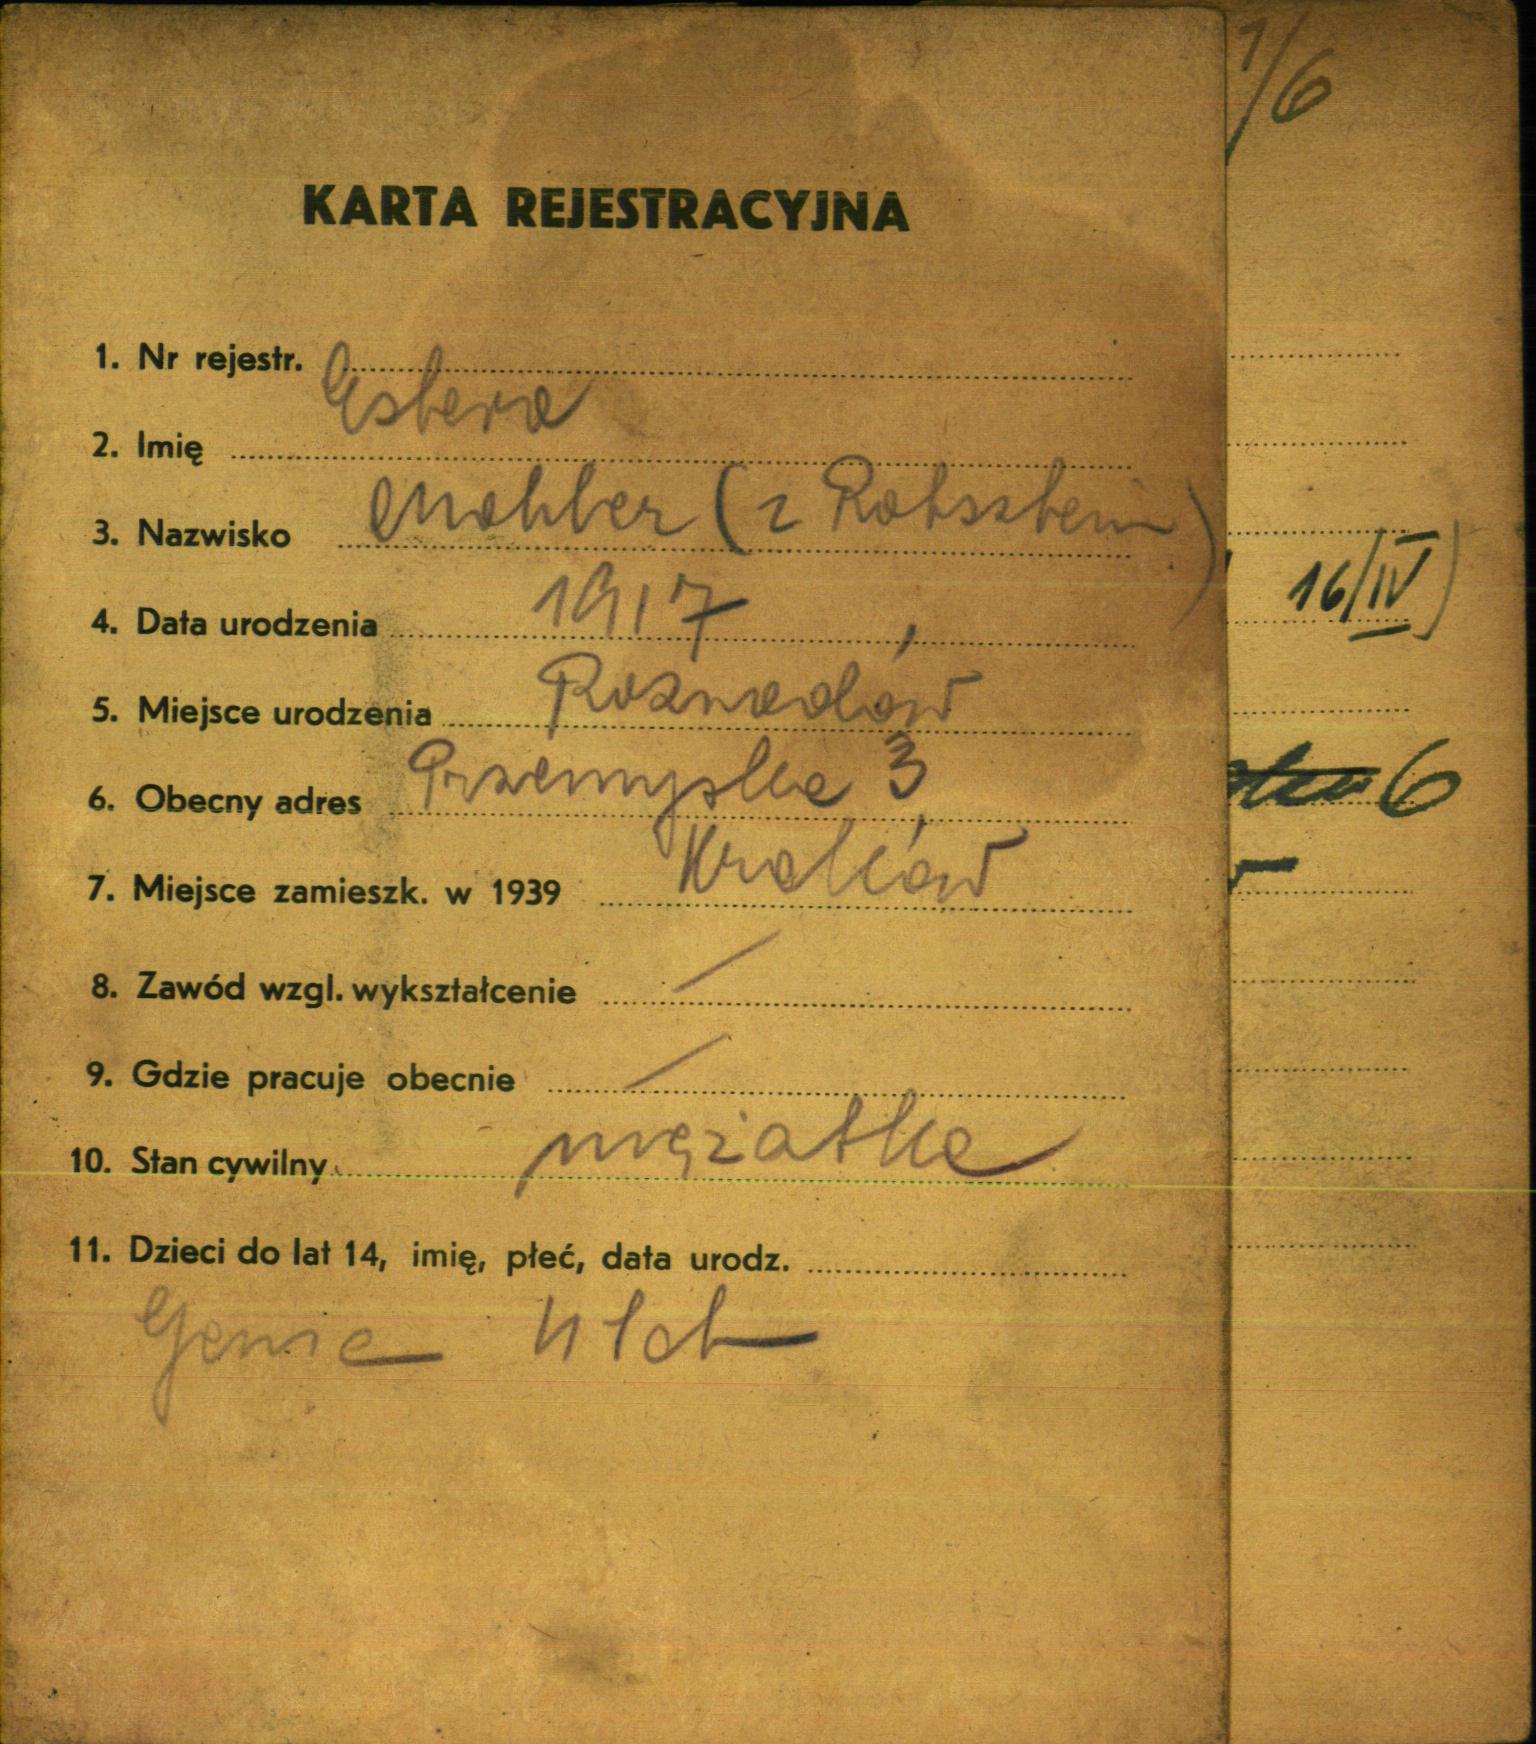 1/6
KARTA REJESTRACYJNA
1. Nr rejestr.
2. Imię Estera
3. Nazwisko Mahler (z Rotsztein)
4. Data urodzenia 1917
5. Miejsce urodzenia Rozwadów
6. Obecny adres Przemyska 3
7. Miejsce zamieszk. w 1939 Kraków
8. Zawód wzgl. wykształcenie /
9. Gdzie pracuje obecnie /
10. Stan cywilny mężatka
11. Dzieci do lat 14, imię, płeć, data urodz.
Genia 4 lat
16/IV)
6